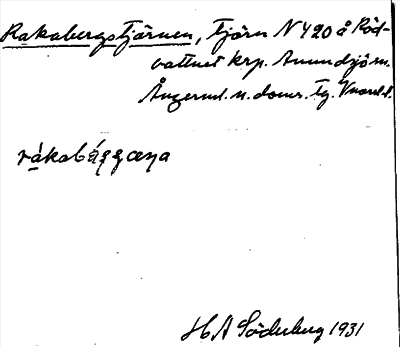 Rakabergstjärnen, tjärn N 420 å Röd-
vattnet krp. Anundsjö sn.
Ångerml. n. doms. tg. Vnorrl. l.
rákabą́ʒʒœŋa
H A Söderberg 1931